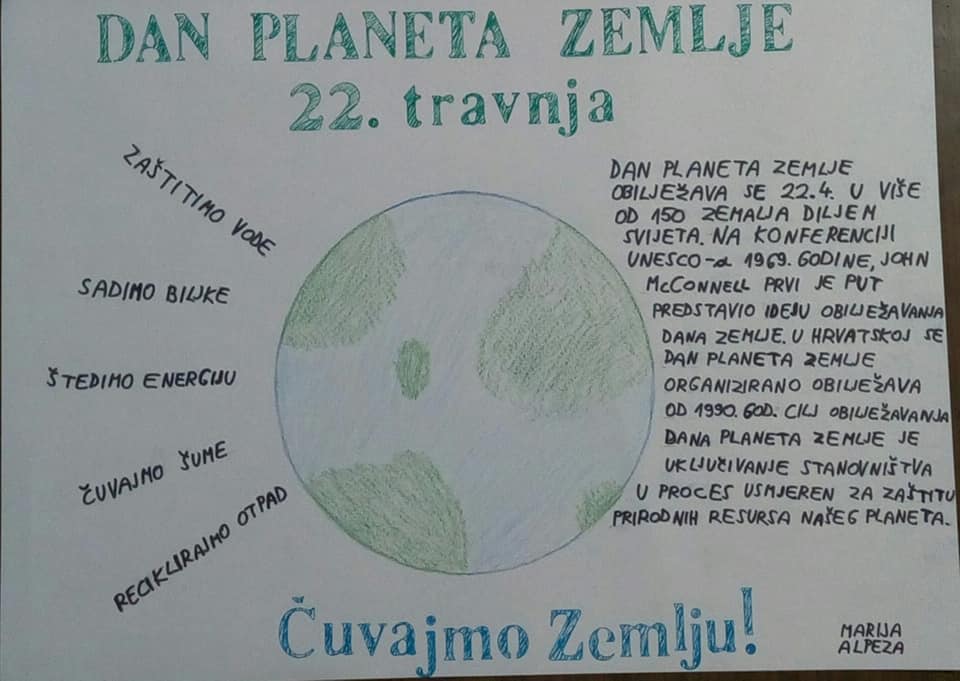 DAN PLANETA ZEMLJE
22. travnja
ZAŠTITIMO VODE
SADIMO BILJKE
ŠTEDIMO ENERGIJU
ČUVAJMO ŠUME
RECIKLIRAJMO OTPAD
DAN PLANETA ZEMLJE
OBILJEŽAVA SE 22.4. U VIŠE
OD 150 ZEMALJA DILJEM
SVIJETA. NA KONFERENCIJI
UNESCO-a 1969. GODINE, JOHN
McCONNELL PRVI JE PUT
PREDSTAVIO IDEJU OBILJEŽAVANJA
DANA ZEMLJE. U HRVATSKOJ SE
DAN PLANETA ZEMLJE
ORGANIZIRANO OBILJEŽAVA
OD 1990. GOD. CILJ OBILJEŽAVANJA
DANA PLANETA ZEMLJE JE
UKLJUČIVANJE STANOVNIŠTVA
U PROCES USMJEREN ZA ZAŠTITU
PRIRODNIH RESURSA NAŠEG PLANETA.
Čuvajmo Zemlju!
MARIJA
ALPEZA